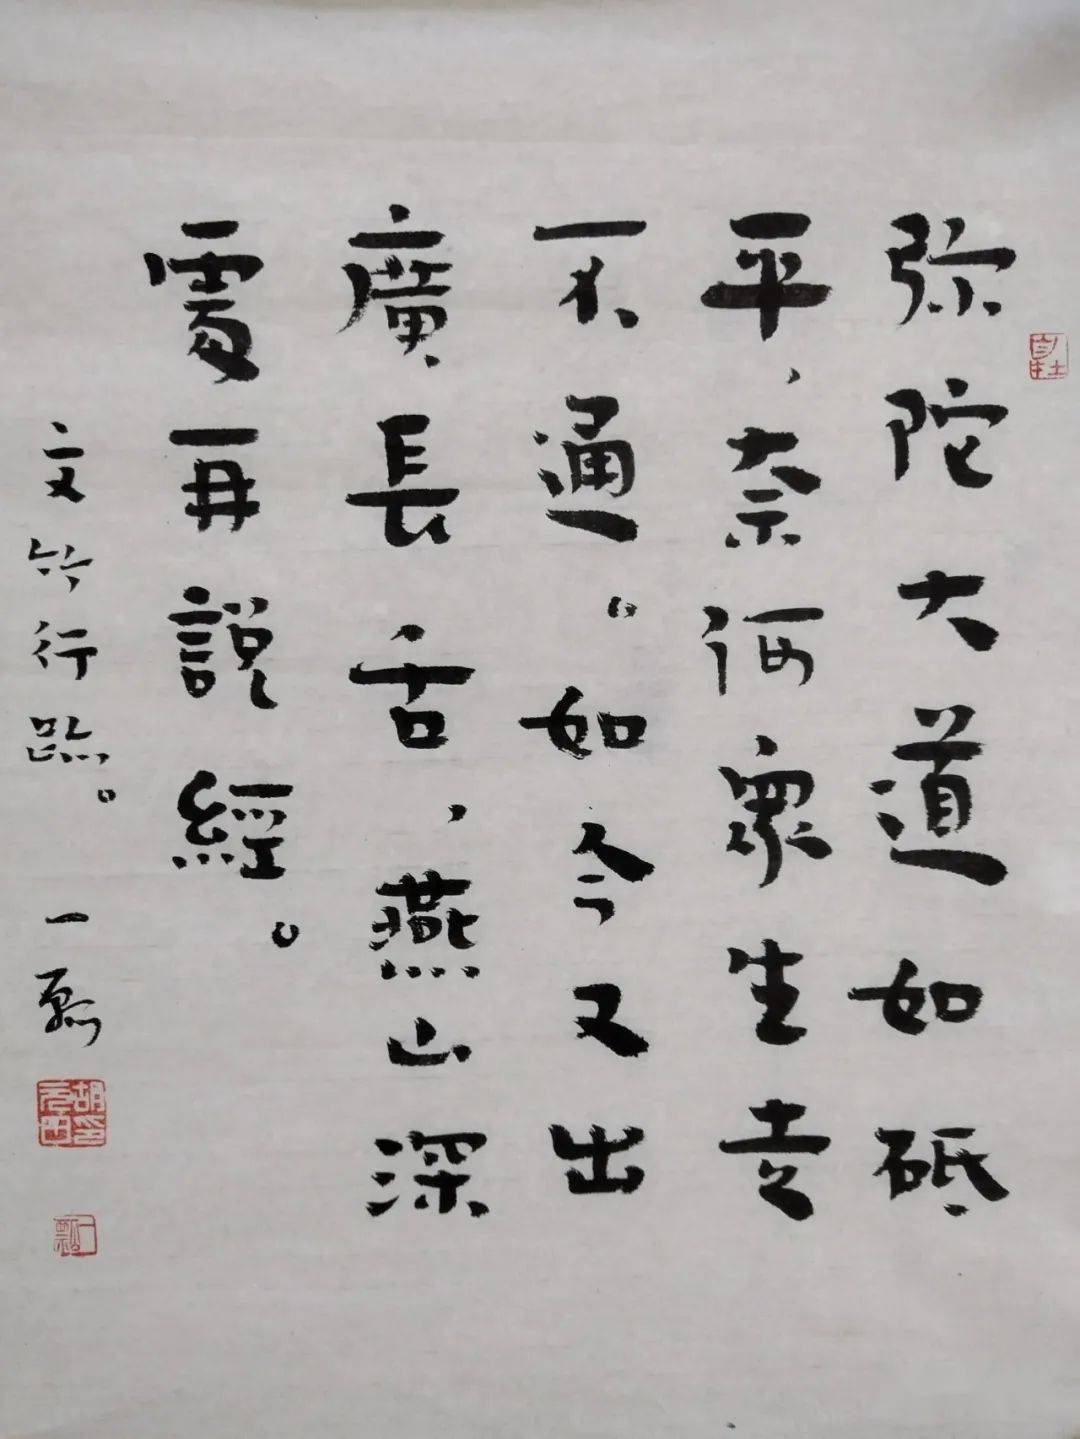 弥陀大道如砥
平，奈何眾生走
不通。如今又出
廣長舌，燕山深
處再說經。
文竹行跡。
一瓢
胡印
一瓢